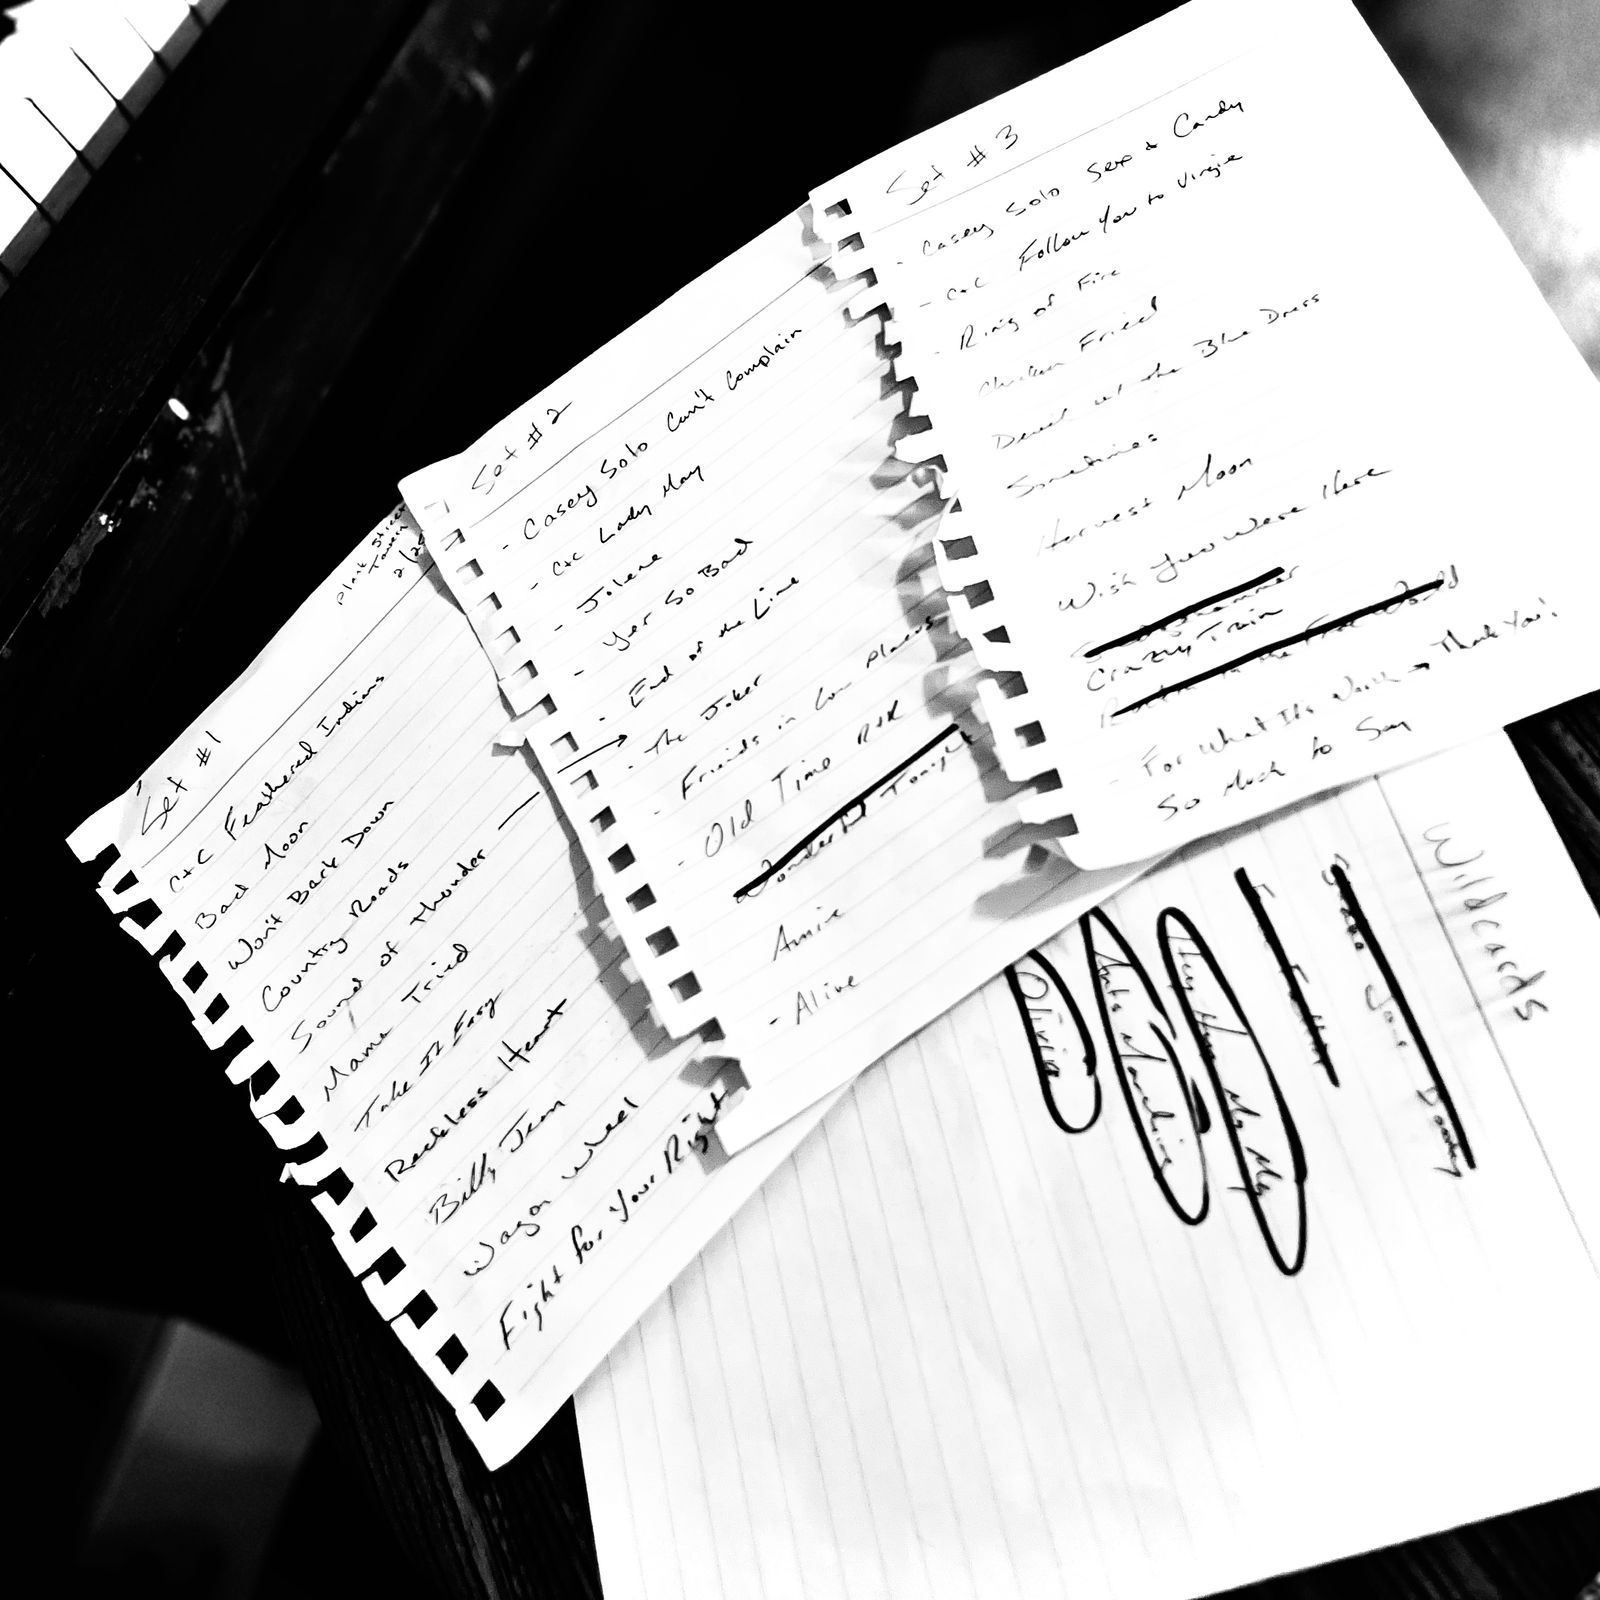 Plant Street
Tavern
2/25
Set #1
C+C Feathered Indians
Bad Moon
Won't Back Down
Country Roads
Sound of Thunder
Mama Tried
Take It Easy
Reckless Heart
Billy Jean
Wagon Wheel
Fight for Your Right
Set #2
- Casey Solo Can't Complain
- C+C Lady May
- Jolene
- Yer So Bad
- End of the Line
- The Joker
- Friends in Low Places
- Old Time RNR
Wonderful Tonight
Amie
- Alive
Set #3
- Casey Solo Sex & Candy
- C+C Follow You to Virgie
- Ring of Fire
Chicken Fried
Devil w/ the Blue Dress
Sometimes
Harvest Moon
Wish You Were Here
Crazy Train
Rockin in the Free World
- For What It's Worth → Thank You!
So Much to Say
Wildcards
Jane Daddy
Hey Hey My My
Ants Marching
Olivia